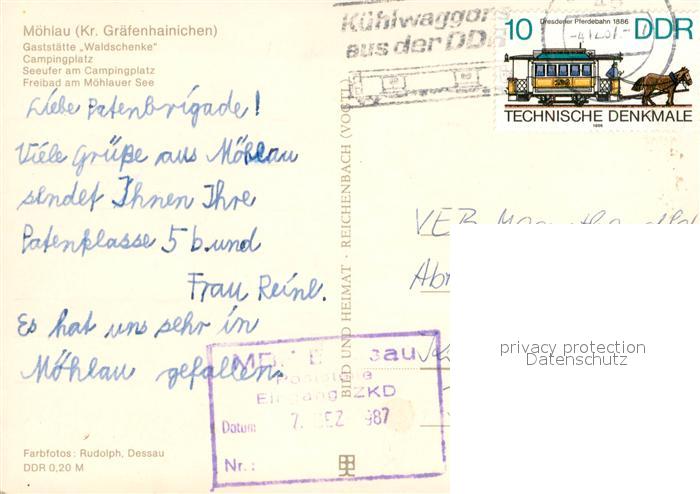 Möhlau (Kr. Gräfenhainichen)
Gaststätte „Waldschenke"
Campingplatz
Seeufer am Campingplatz
Freibad am Möhlauer See
Liebe Patenbrigade!
Viele Grüße aus Möhlau
sendet Ihnen Ihre
Patenklasse 5 b und
Frau Reinl.
Es hat uns sehr in
Möhlau gefallen.
Farbfotos: Rudolph, Dessau
DDR 0,20 M
BILD UND HEIMAT · REICHENBACH (VOGTL)
Kühlwaggons
aus der DDR
Dresdener Pferdebahn 1886
10 DDR
TECHNISCHE DENKMALE
1986
VEB
Eingang ZKD
Datum 7. DEZ. 1987
Nr.:
privacy protection
Datenschutz